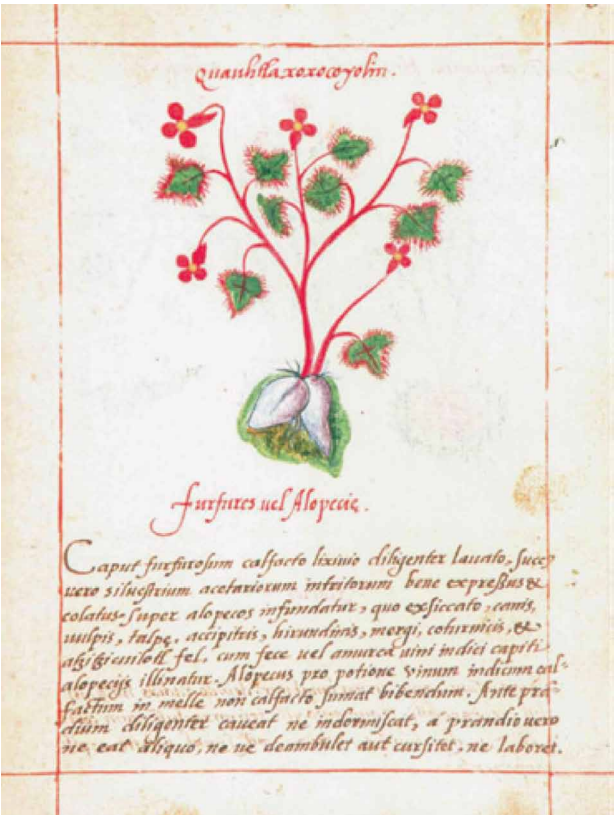 Quauhtlaxoxocoyolin.
furfures uel Alopecie.
Caput furfurosum calfacto lixiuio diligenter lauato, succꝰ
vero siluestrium acetariorum intritorum bene expreßus &
colatus super alopecos infundatur, quo exsiccato, canis,
uulpis, talpę, accipitris, hirundinis, mergi, coturnicis, &
fel, cum fece uel amurca uini indici capiti
alopecijs illinatur. Alopecus pro potione uinum indicum cal-
factum in melle non calfacto sumat bibendum. Ante pran-
dium diligenter caueat ne indormiscat, a prandio uero
ne eat aliquo, ne ue deambulet aut cursitet, ne laboret.